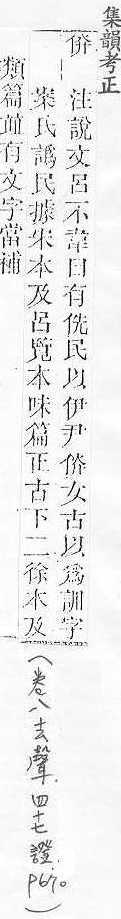 集韻考正
倴 注說文呂不韋曰有侁民以伊尹倴女古以爲訓字
案氏譌民據宋本及呂覽本味篇正古下二徐本及
類篇竝有文字當補
(卷八去聲.四十七證.P670)